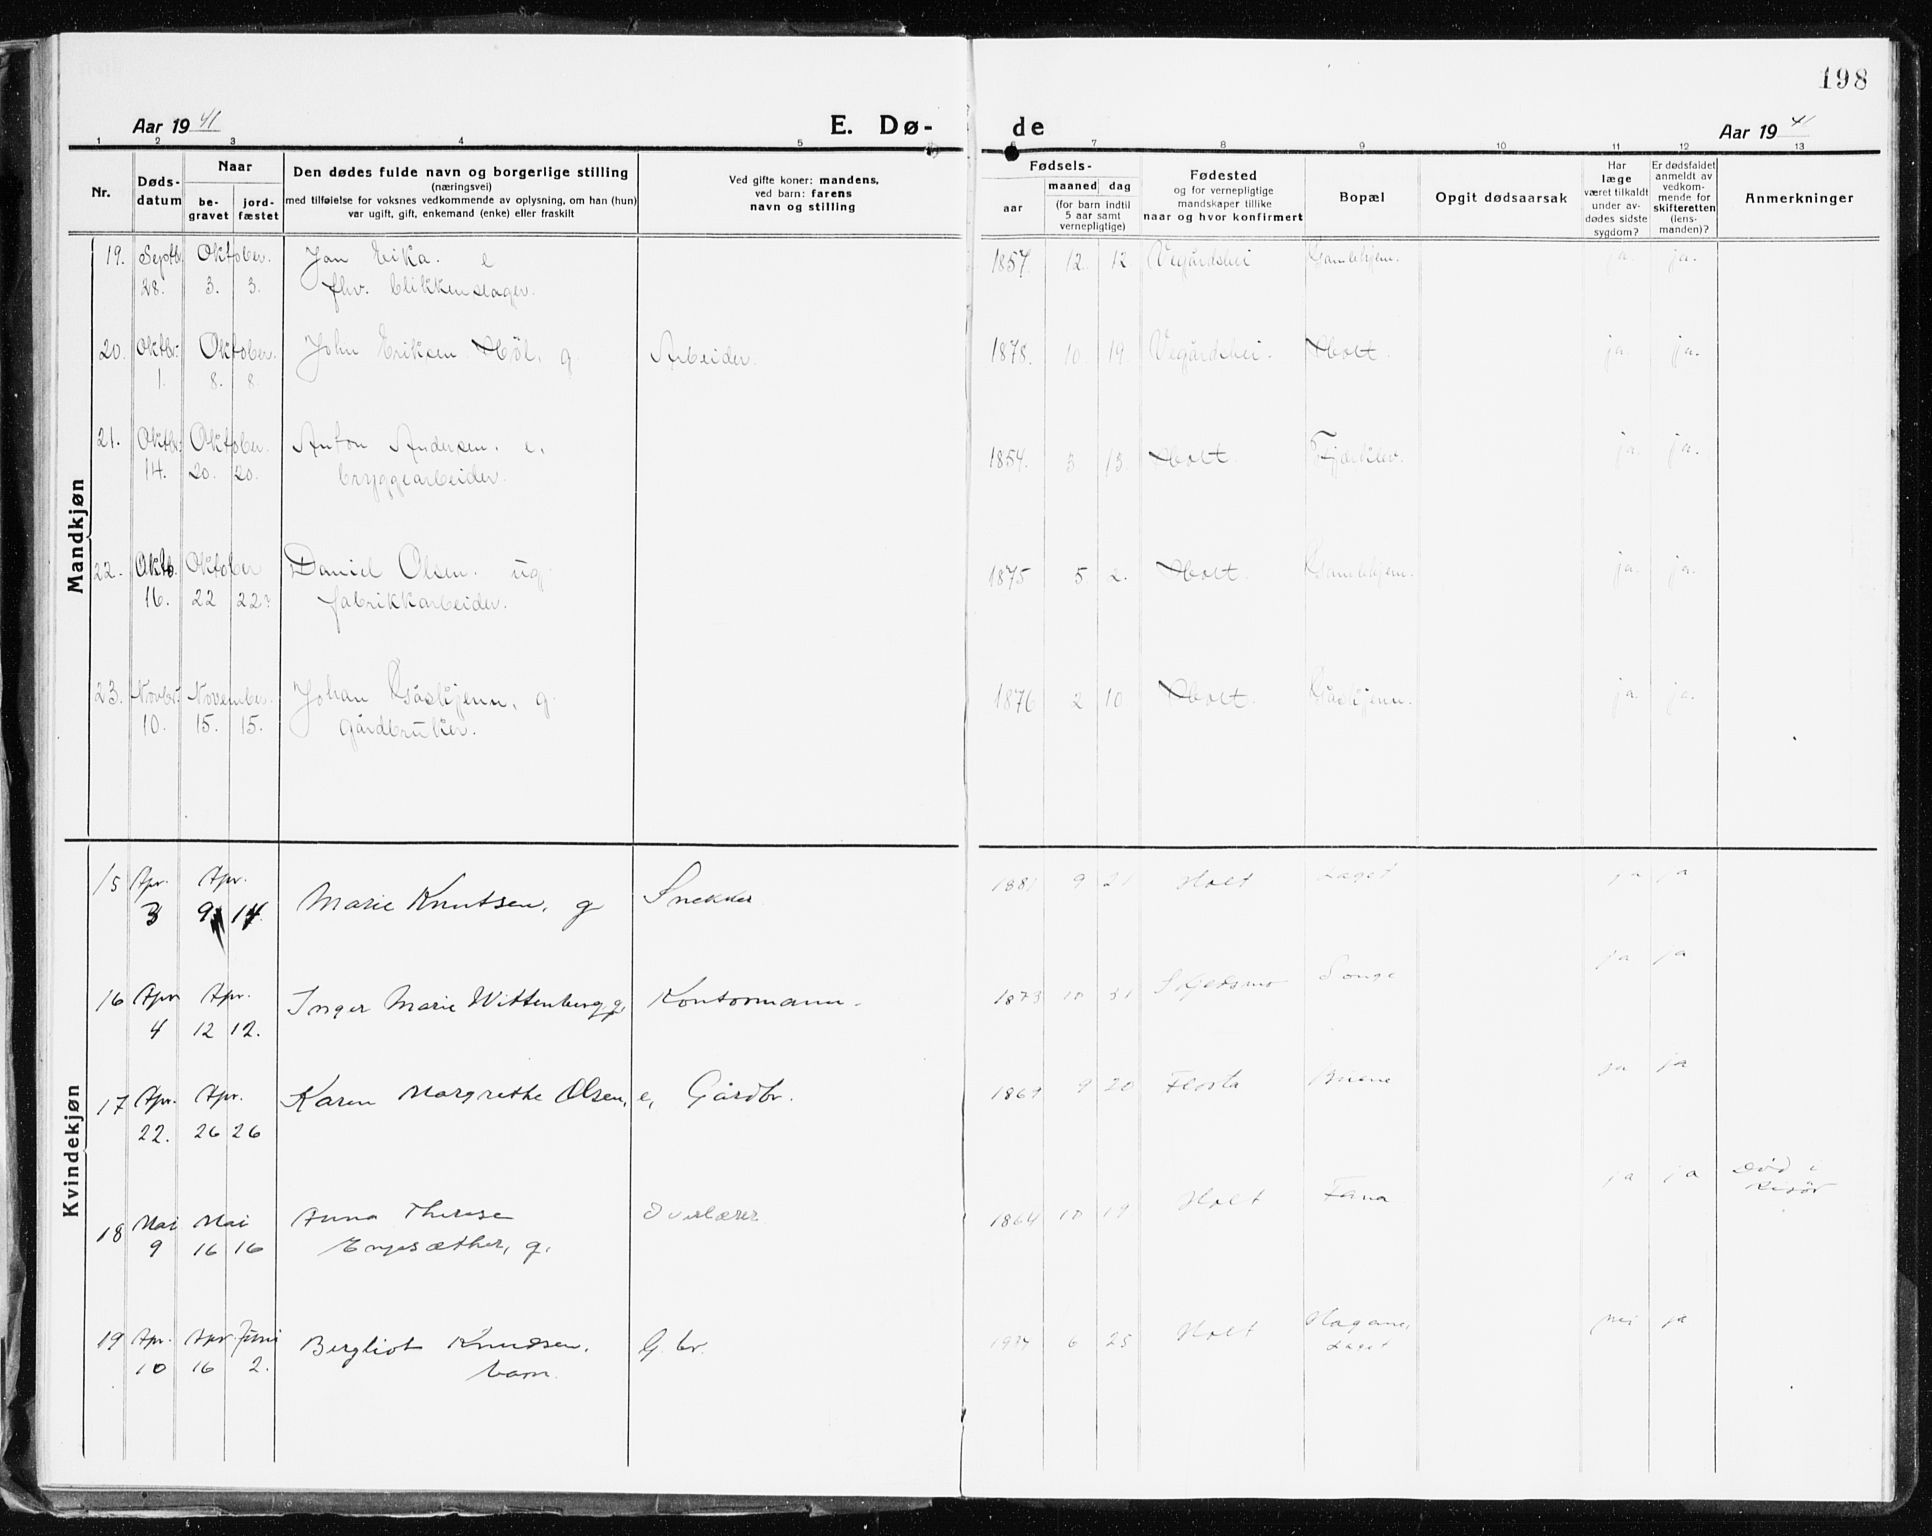 198
Aar 19 41
E. Dø-
de
Aar 19 41
1 2 3 4 5 6 7 8 9 10 11 12 13
Nr.
Døds-
datum
Naar
be-
gravet
jord-
fæstet
Den dødes fulde navn og borgerlige stilling
(næringsvei)
med tilføielse for voksnes vedkommende av oplysning, om han (hun)
var ugift, gift, enkemand (enke) eller fraskilt
Ved gifte koner: mandens,
ved barn: farens
navn og stilling
Fødsels-
aar
maaned dag
(for barn indtil
5 aar samt
vernepligtige)
Fødested
og for vernepligtige
mandskaper tillike
naar og hvor konfirmert
Bopæl
Opgit dødsaarsak
Har
læge
været tilkaldt
under av-
dødes sidste
sygdom?
Er dødsfaldet
anmeldt av
vedkom-
mende for
skifteretten
(lens-
manden)?
Anmerkninger
Mandkjøn
19. Septbr. Oktober. Jon Eika. e 1857. 12. 12 Vegårdshei Gamlehjem. ja. ja.
28. 3. 3. fhv. blikkenslager.
20. Oktbr. Oktober. John Eriksen Høl, g Arbeider. 1878. 10. 19. Vegårdshei. Holt. ja. ja.
1. 8. 8.
21. Oktbr. Oktober. Anton Andersen. e. 1854. 3 13 Holt. Fjærklev. ja. ja.
14. 20. 20. bryggearbeider.
22. Oktb. Oktober Daniel Olsen. ug. 1875 5 2. Holt. Gamlehjem. ja. ja.
16. 22 22. fabrikkarbeider.
23. Novbr. November. Johan Gåskjenn, g. 1876 2 10 Holt. Gåskjenn. ja. ja.
10. 15. 15. gårdbruker.
Kvindekjøn
15 Apr. Apr. Marie Knutsen, g Snekker. 1881 9 21 Holt Laget ja ja
3 9 14.
16 Apr Apr. Inger Marie Wittenberg, g, Kontormann. 1873 10 31 Skjedsmo Songe ja ja
4 12 12.
17 Apr. Apr. Karen Margrethe Olsen, e, Gårdbr. 1869 9 20 Flosta Buene ja ja
22. 26 26
18 Mai Mai Anna Therese Overlærer 1864 10 19 Holt Fana ja ja Død i
9 16 16 Engesæther, g. Risør
19 Apr. Apr. Juni Bergliot Knudsen, G. br. 1934 6 25 Holt Hagane, nei ja
10 16 2. barn. Laget